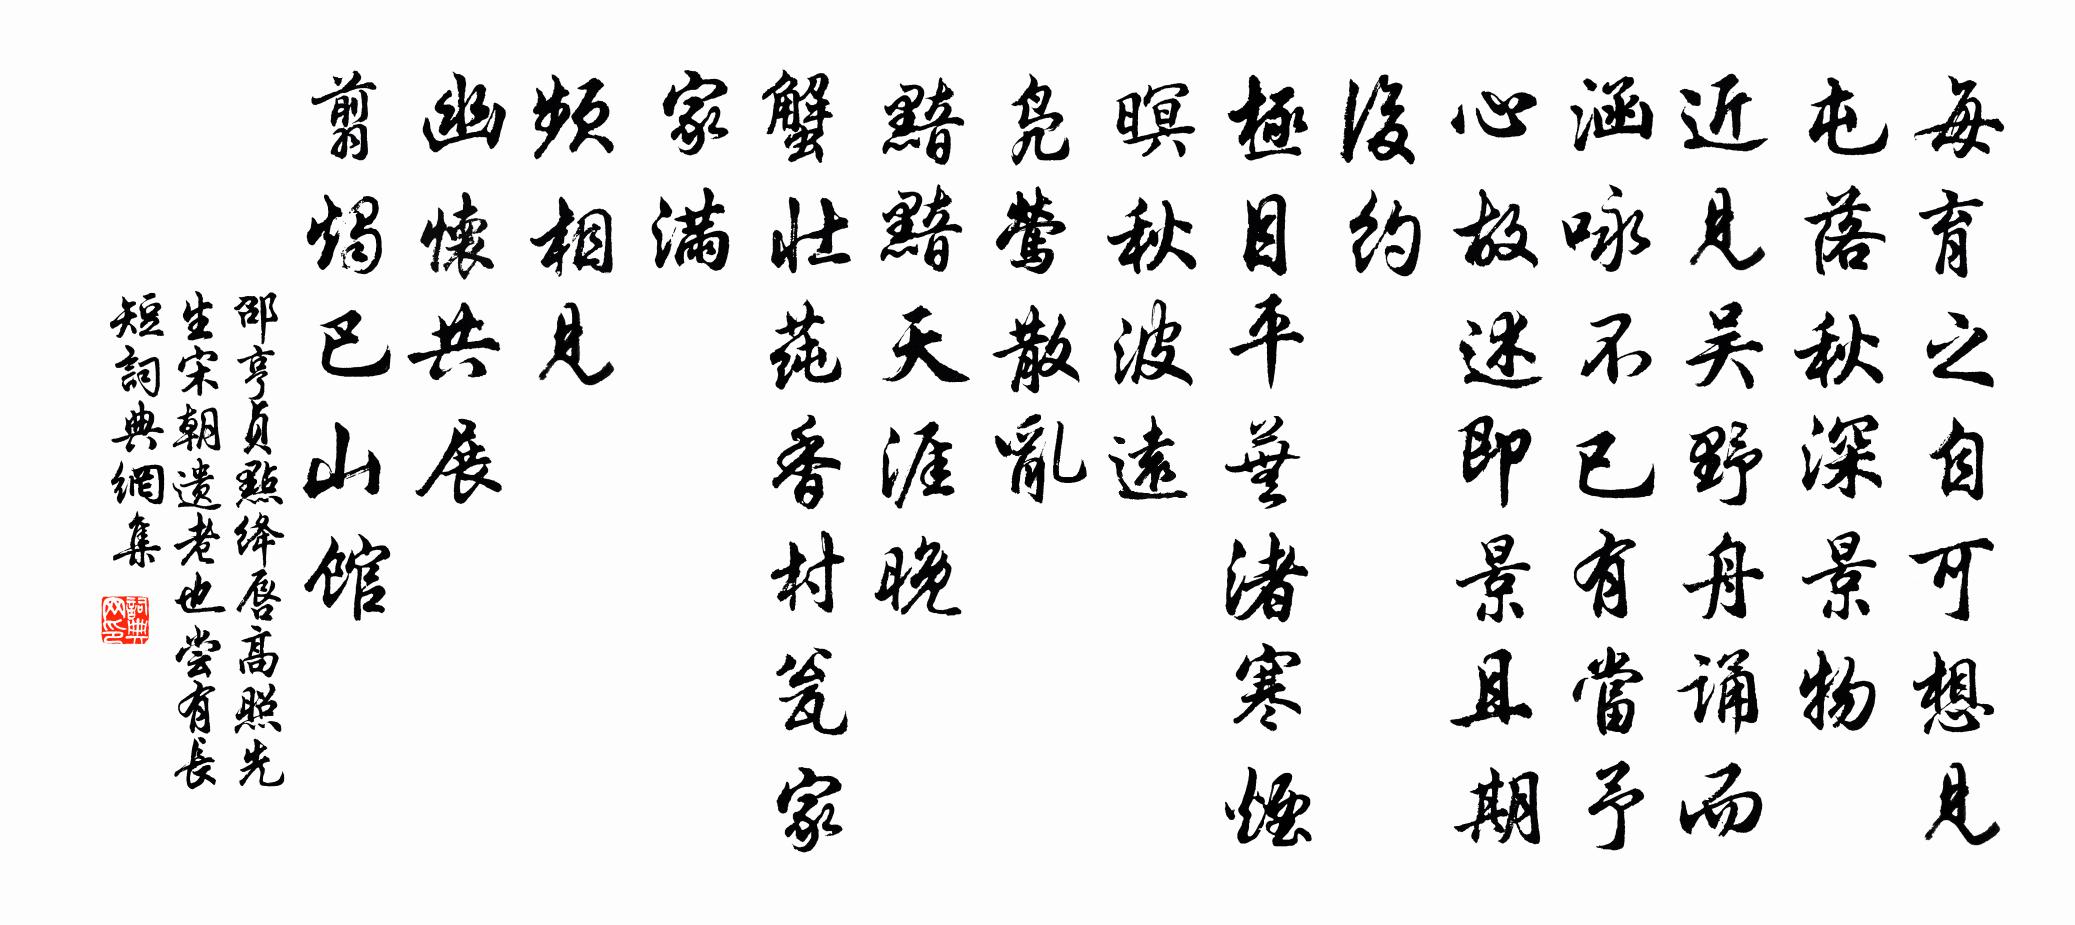 每育之自可想見
屯落秋深景物
近見吴野舟诵而
涵咏不已有當予
心故述即景且期
後約
極目平蕪渚寒煙
暝秋波遠
凫鶯散亂
黯黯天涯晚
蟹壮莼香村瓮家
家滿
頻相見
幽懷共展
翦燭巴山館
邵亨貞點绛唇高照先
生宋朝遗老也尝有長
短詞典網集
詞典网印